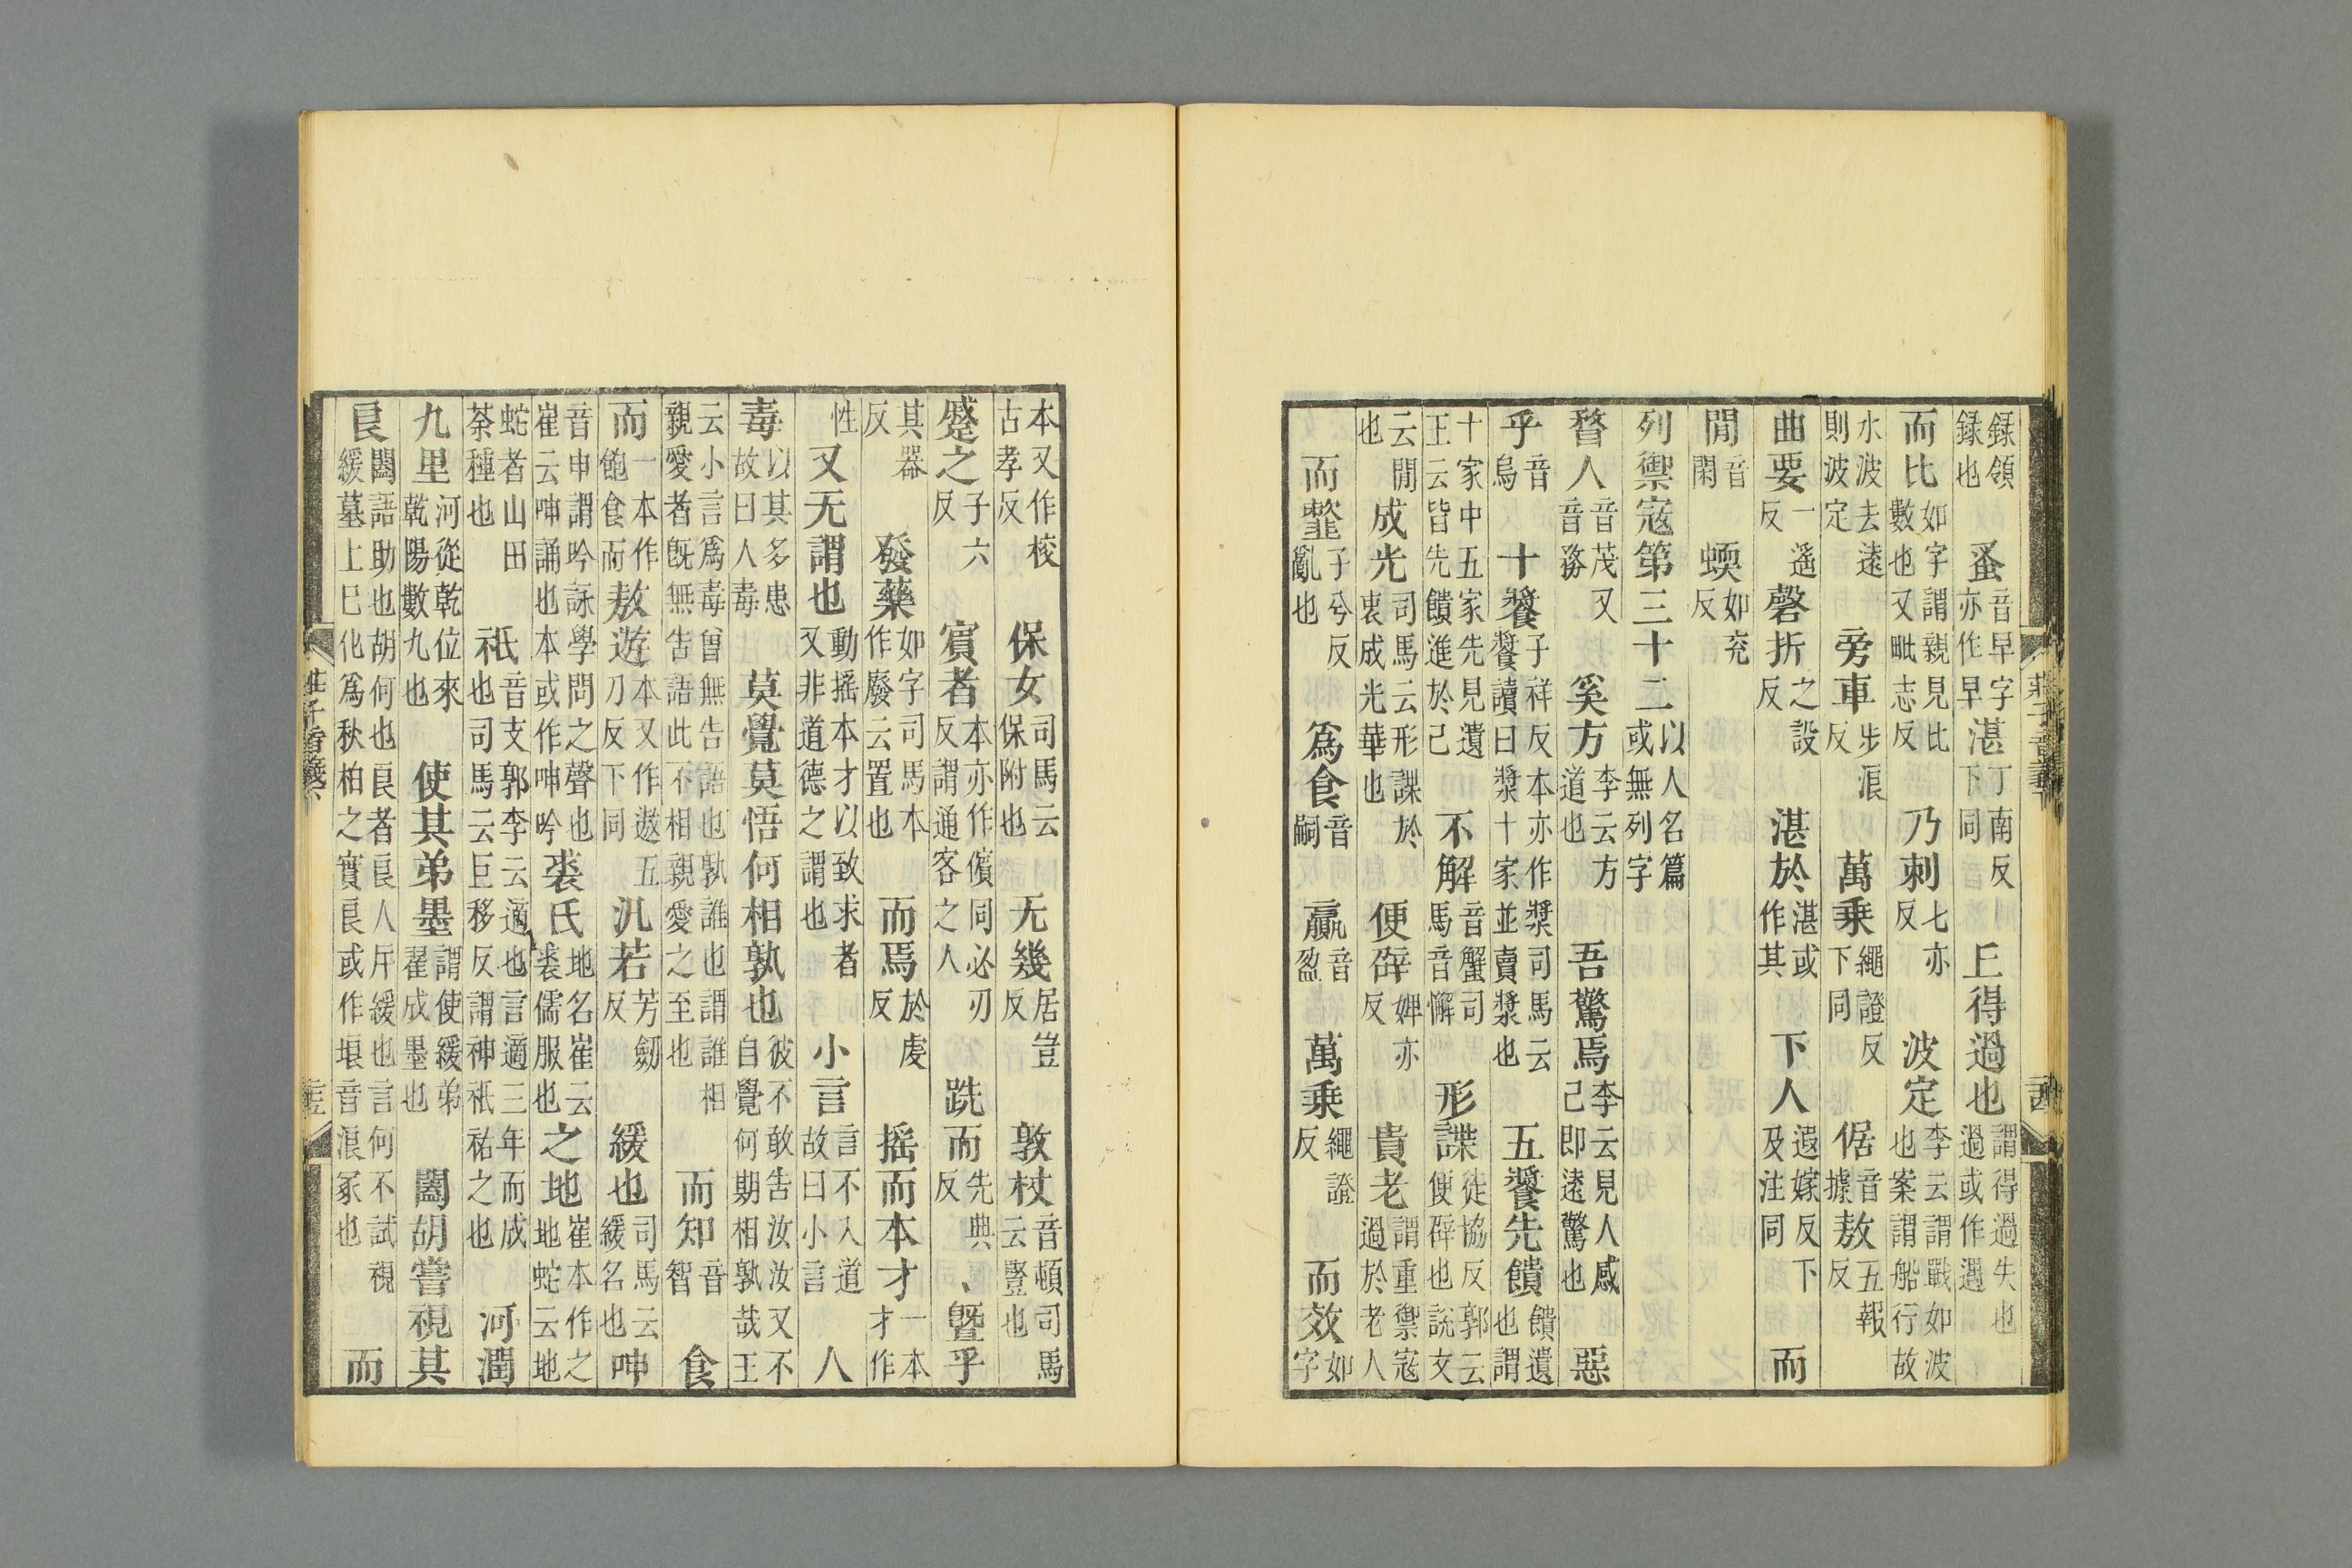 錄領錄也 蚤音早字亦作早湛丁南反下同 上得過也謂得過失也過或作遇
而比如字謂親見比數也又毗志反 乃刺七亦反 波定李云謂戰如波也案謂船行故
水波去遠則波定 旁車步浪反 萬乘繩證反下同 倨音據敖五報反
曲要一遥反磬折之設反 湛於湛或作其 下人遐嫁反下及注同 而
閒音閑 蝡如兖反
列禦寇第三十二以人名篇或無列字
瞀人音茂又音務 奚方李云方道也 吾驚焉李云見人感己即遠驚也 惡
乎音烏 十饗子祥反本亦作漿司馬云饗讀曰漿十家並賣漿也 五饗先饋饋遺也謂
十家中五家先見遺王云皆先饋進於己 不解音蟹司馬音懈 形諜徒協反郭云便辟也說文
云閒也 成光司馬云形諜於衷成光華也 便辟婢亦反 貴老謂重禦寇過於老人
而䪡子兮反亂也 爲食音嗣 贏音盈 萬乘繩證反 而效如字
本又作校古孝反 保女司馬云保附也 无幾居豈反 敦杖音頓司馬云豎也
蹙之子六反 賓者本亦作儐同必刃反謂通客之人 跣而先典反 暨乎
其器反 發藥如字司馬本作廢云置也 而焉於虔反 摇而本才一本才作
性 又无謂也動摇本才以致求者又非道德之謂也 小言言不入道故曰小言 人
毒以其多患故曰人毒 莫覺莫悟何相孰也彼不敢告汝汝又不自覺何期相孰哉王
云小言爲毒曾無告語也孰誰也謂誰相親愛者旣無告語此不相親愛之至也 而知音智 食
而一本作飽食而敖遊本又作遨五刀反下同 汎若芳劒反 緩也司馬云緩名也呻
音申謂吟詠學問之聲也崔云呻誦也本或作呻吟裘氏地名崔云裘儒服也之地崔本作之地蛇云地
蛇者山田荼種也 祇音支郭李云適也言適三年而成也司馬云巨移反謂神祇祐之也 河潤
九里河從乾位來乾陽數九也 使其弟墨謂使緩弟翟成墨也 闔胡嘗視其
良闔語助也胡何也良者良人斥緩也言何不試視緩墓上已化爲秋柏之實良或作埌音浪冢也 而